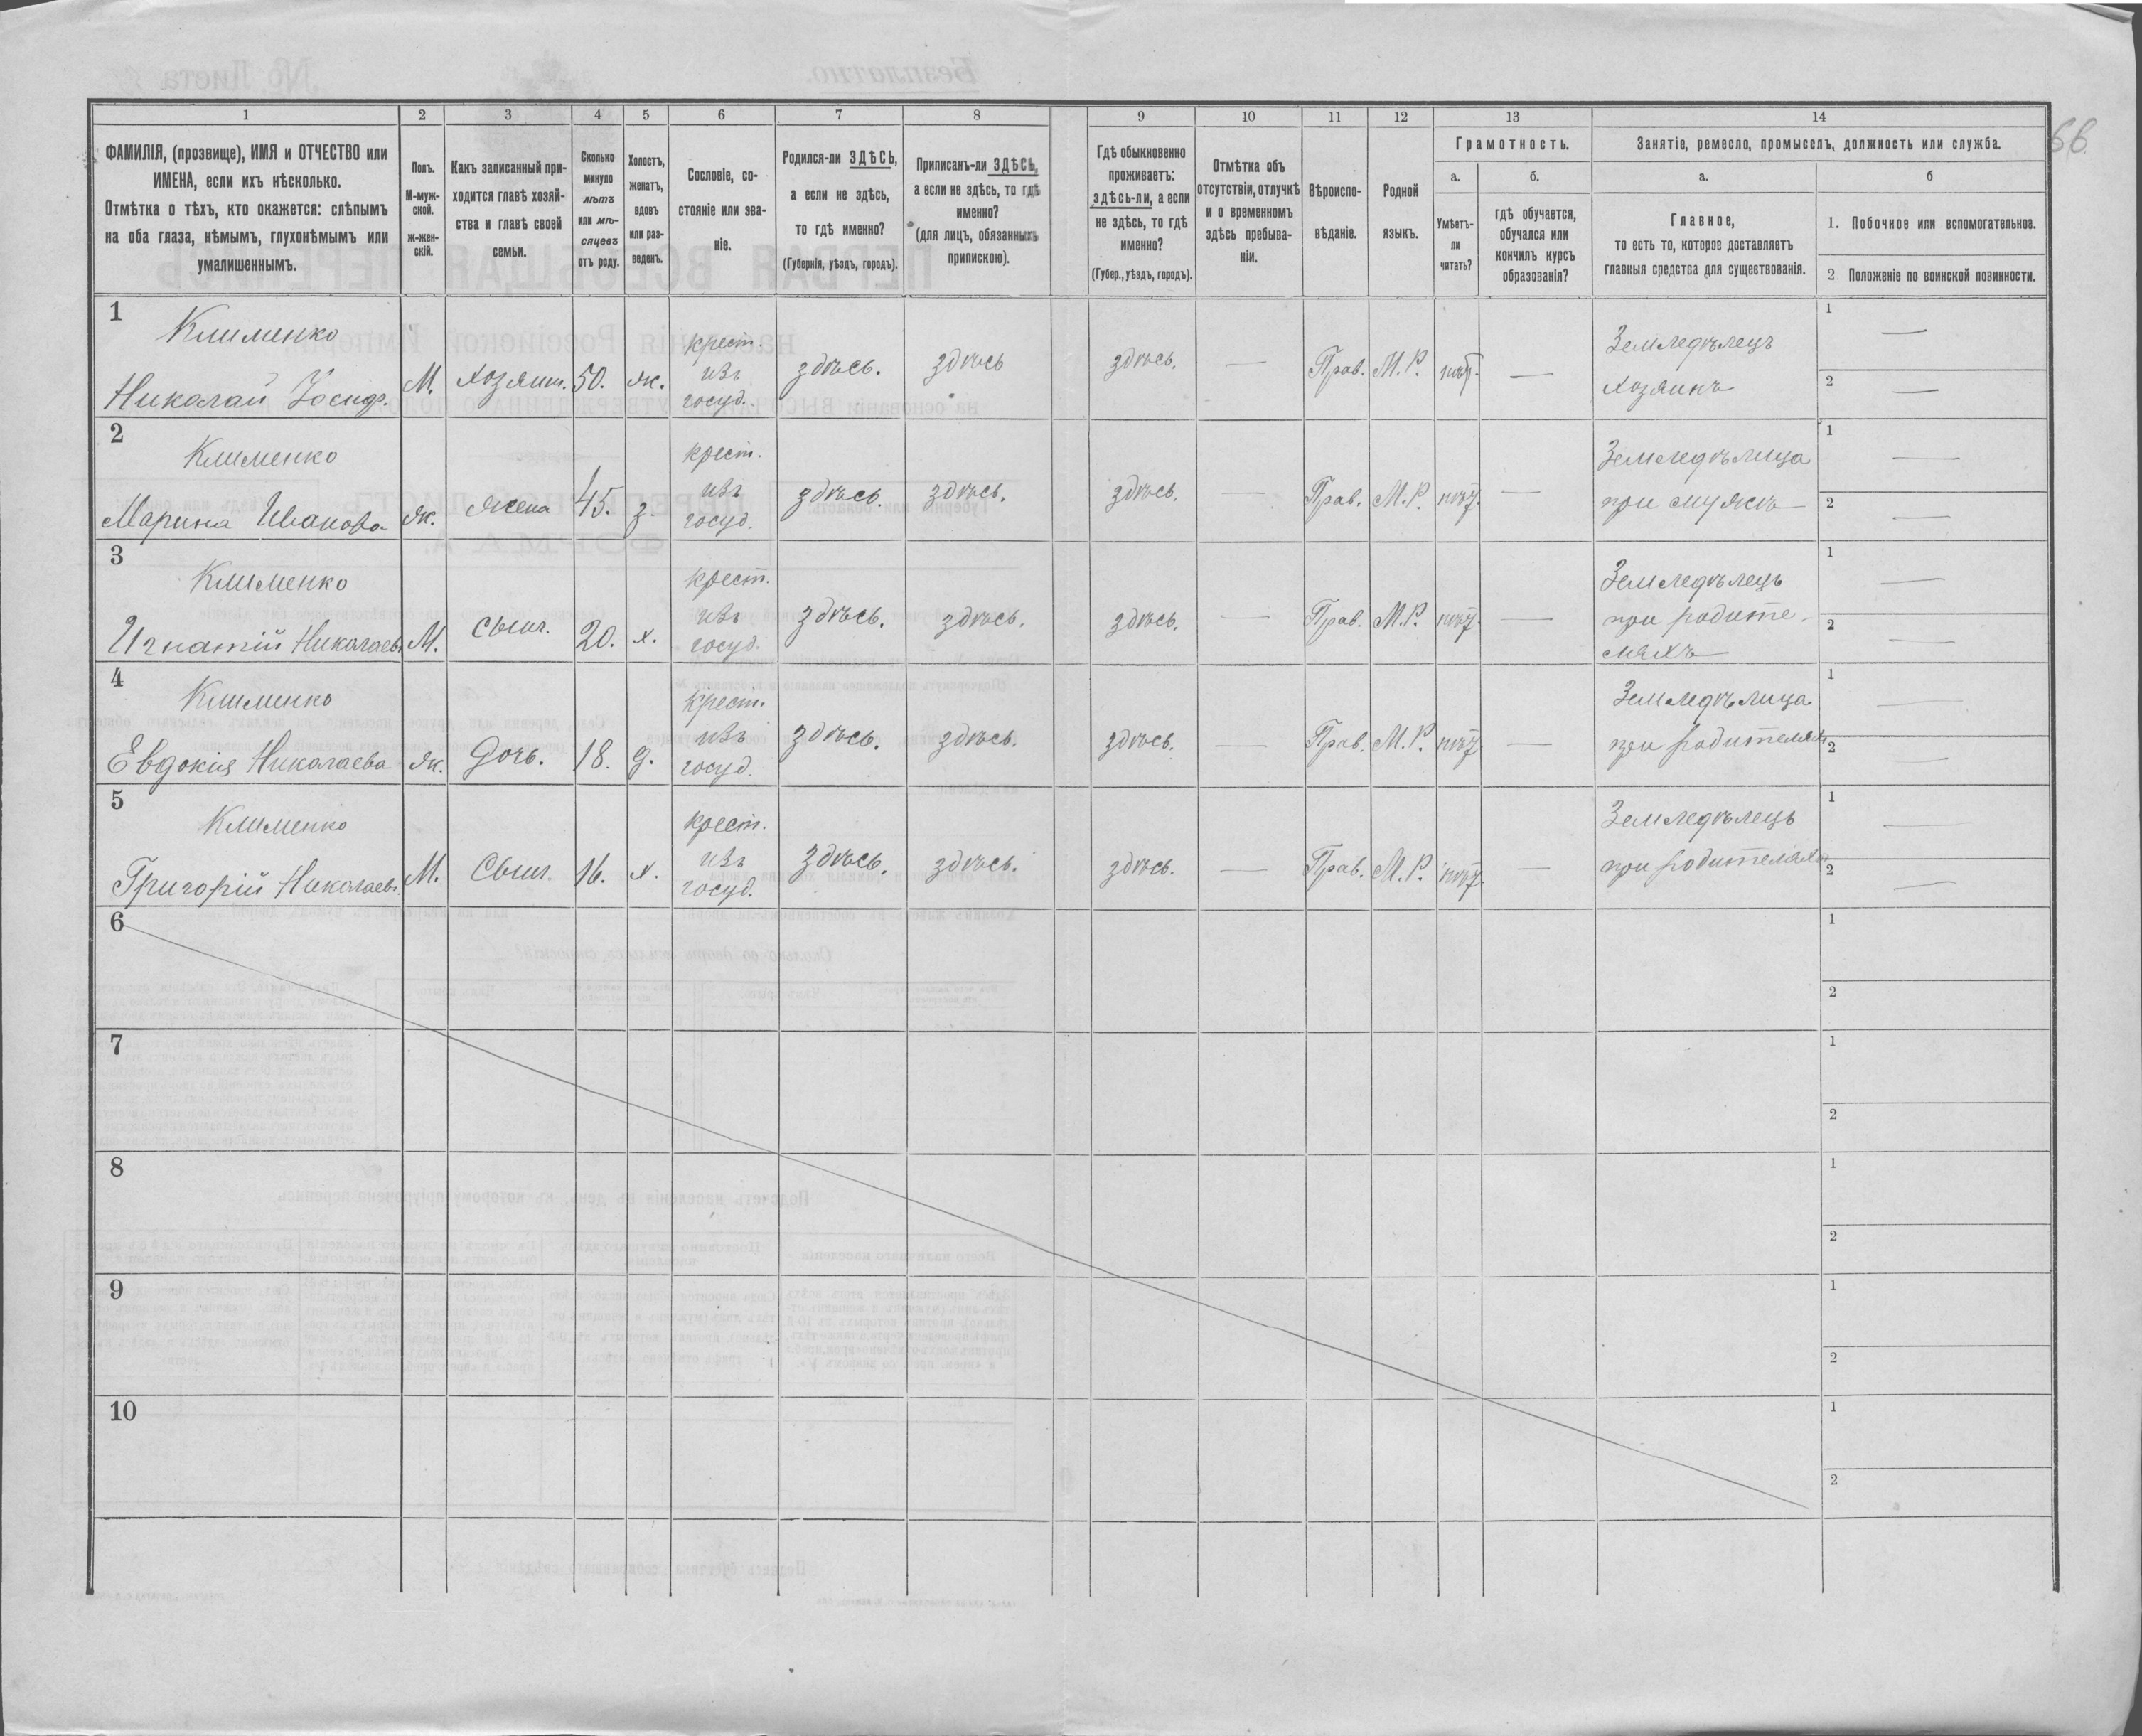 66
1 2 3 4 5 6 7 8 9 10 11 12 13 14
ФАМИЛІЯ, (прозвище), ИМЯ и ОТЧЕСТВО или
ИМЕНА, если ихъ нѣсколько.
Отмѣтка о тѣхъ, кто окажется: слѣпымъ
на оба глаза, нѣмымъ, глухонѣмымъ или
умалишеннымъ.
Полъ.
М-муж-
ской.
ж-жен-
скій.
Какъ записанный при-
ходится главѣ хозяй-
ства и главѣ своей
семьи.
Сколько
минуло
лѣтъ
или мѣ-
сяцевъ
отъ роду.
Холостъ,
женатъ,
вдовъ
или раз-
веденъ.
Сословіе, со-
стояніе или зва-
ніе.
Родился-ли ЗДѢСЬ,
а если не здѣсь,
то гдѣ именно?
(Губернія, уѣздъ, городъ).
Приписанъ-ли ЗДѢСЬ,
а если не здѣсь, то гдѣ
именно?
(для лицъ, обязанныхъ
припискою).
Гдѣ обыкновенно
проживаетъ:
здѣсь-ли, а если
не здѣсь, то гдѣ
именно?
(Губер., уѣздъ, городъ).
Отмѣтка объ
отсутствіи, отлучкѣ
и о временномъ
здѣсь пребыва-
ніи.
Вѣроиспо-
вѣданіе.
Родной
языкъ.
Грамотность.
а.
Умѣетъ-
ли
читать?
б.
гдѣ обучается,
обучался или
кончилъ курсъ
образованія?
Занятіе, ремесло, промыселъ, должность или служба.
а.
Главное,
то есть то, которое доставляетъ
главныя средства для существованія.
б
1. Побочное или вспомогательное.
2 Положеніе по воинской повинности.
1
Клименко
Николай Іосиф.
М.
хозяин.
50.
ж.
крест.
изъ
госуд.
здѣсь.
здѣсь
здѣсь.
—
Прав.
М. Р.
—
Земледѣлецъ
хозяинъ
1 —
2 —
2
Клименко
Марина Иванова
ж.
жена
45.
з.
крест.
изъ
госуд.
здѣсь.
здѣсь.
здѣсь.
—
Прав.
М. Р.
нѣт.
—
Земледѣлица
при мужѣ
1 —
2 —
3
Клименко
Игнатій Николаевъ
М.
Сынъ.
20.
х.
крест.
изъ
госуд.
здѣсь.
здѣсь.
здѣсь.
—
Прав.
М. Р.
нѣт.
—
Земледѣлецъ
при родите-
ляхъ
1 —
2 —
4
Клименко
Евдокія Николаева
ж.
Дочь.
18.
д.
крест.
изъ
госуд.
здѣсь.
здѣсь.
здѣсь.
—
Прав.
М. Р.
нѣт
—
Земледѣлица
при родителяхъ
1 —
2 —
5
Клименко
Григорій Николаевъ
М.
Сынъ
16.
х.
крест.
изъ
госуд.
здѣсь.
здѣсь.
здѣсь.
—
Прав.
М. Р.
нѣт.
—
Земледѣлецъ
при родителяхъ
1 —
2 —
6
1
2
7
1
2
8
1
2
9
1
2
10
1
2